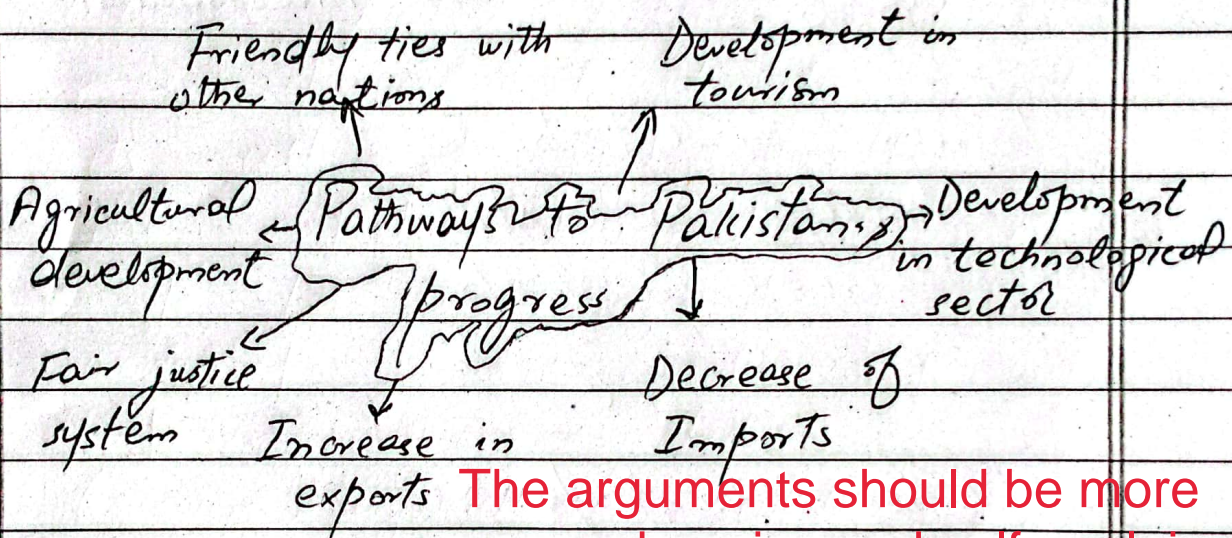 Friendly ties with
other nations
Development in
tourism
Agricultural
development
Pathways to Pakistan's
progress
Development
in technological
sector
Fair justice
system
Increase in
exports
Decrease of
Imports
The arguments should be more